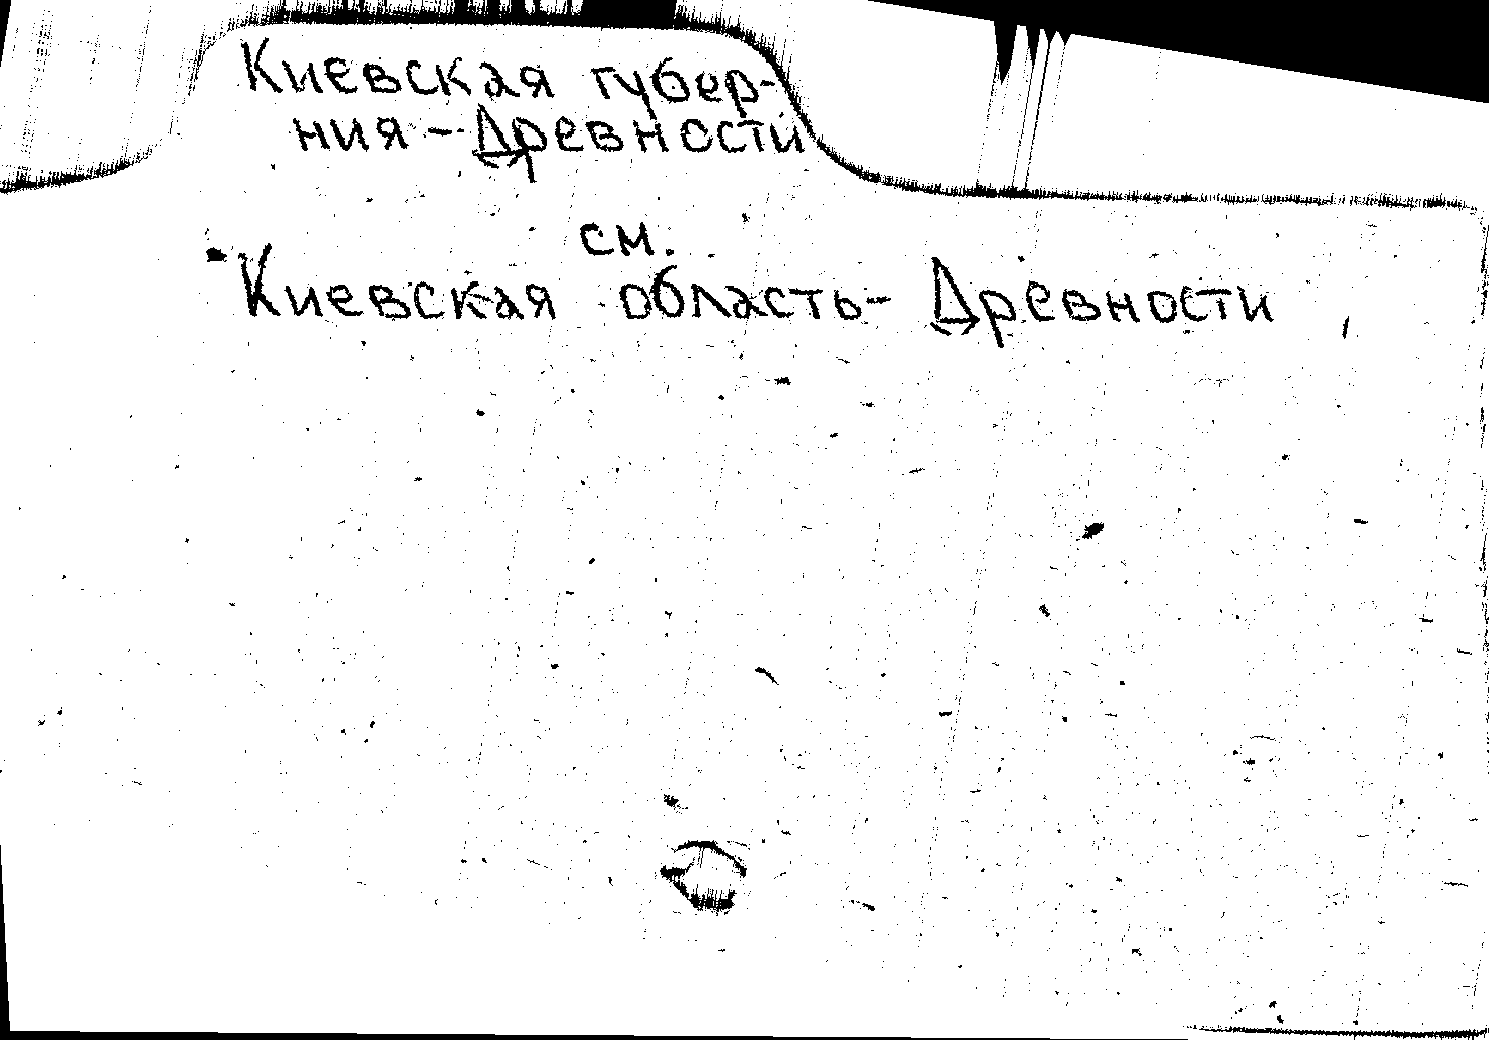 Киевская губер-
ния - Древности
см.
Киевская область - Древности